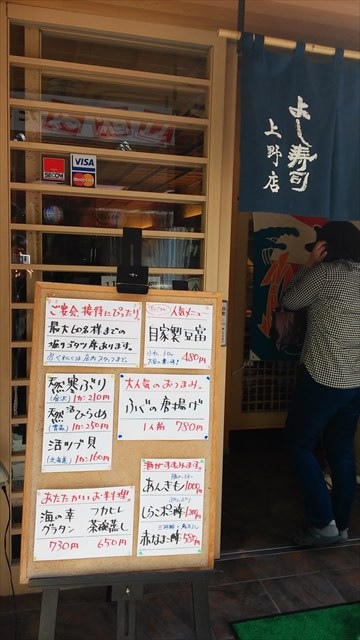 よし寿司
上野店
SECOM
VISA
MasterCard
ご宴会接待にぴったり
最大60名様までの
掘りゴタツ席あります。
人気メニュー
自家製豆富
480円
天然寒ぶり
1カン210円
天然活ひらめ
(青森) 1カン250円
活ツブ貝
(北海道) 1カン160円
大人気のおつまみ。
ふぐの唐揚げ
1人前 780円
あたたかいお料理
海の幸
グラタン
730円
フカヒレ
茶碗蒸し
650円
酒がすすみます。
あんきも
しらこ
赤なまこ酢